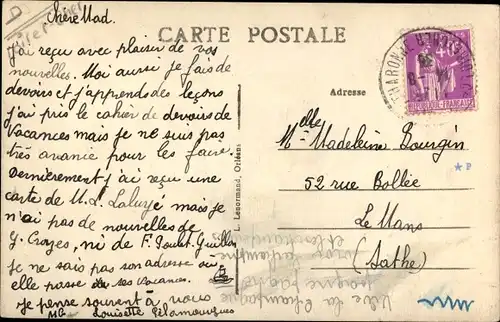 Chère Mad.
CARTE POSTALE
J'ai reçu avec plaisir de vos
nouvelles. Moi aussi je fais de
devoirs et j'apprends des leçons
j'ai pris le cahier de devoirs de
vacances mais je ne suis pas
très avancé pour les faire.
Dernièrement j'ai reçu une
carte de M. L. mais je
n'ai pas de nouvelles de
G. Crozes, ni de F.
Je ne sais pas son adresse où
elle passe de ses vacances.
Je pense souvent à vous
Louisette
L. Lenormand, Orléans
Adresse
Mlle Madeleine Bourgin
52 rue Bollée
Le Mans
(Sathe)
REPUBLIQUE FRANÇAISE